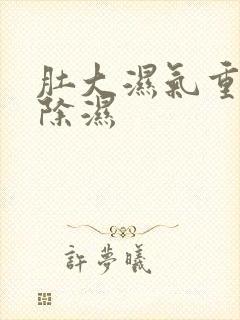 肚大濕氣重
除濕
許夢曦